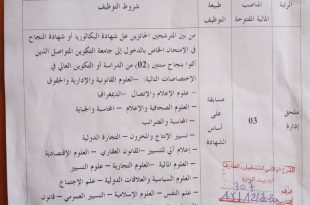 الرتبة
المناصب المالية المفتوحة
طبيعة التوظيف
شروط التوظيف
ملحق إدارة
03
مسابقة على أساس الشهادة
من بين المترشحين الحائزين على شهادة البكالوريا أو شهادة النجاح
في الامتحان الخاص بالدخول إلى جامعة التكوين المتواصل الذين
تابعوا بنجاح سنتين (02) من الدراسة أو التكوين العالي في
الاختصاصات التالية: - العلوم القانونية والإدارية والحقوق
- علوم الإعلام والاتصال - الديمغرافيا
- علوم الصحافية والإعلام - المحاسبة والجباية
- المحاسبة والضرائب
- تسيير الإنتاج والمخزون - التجارة الدولية
- إعلام آلي للتسيير - القانون العقاري - الاقتصادية
- العلوم المالية - العلوم التجارية - علوم التسيير
- العلوم السياسية والعلاقات الدولية - علم الاجتماع
- علم النفس - العلوم الإسلامية - التسيير العمومي - قانون